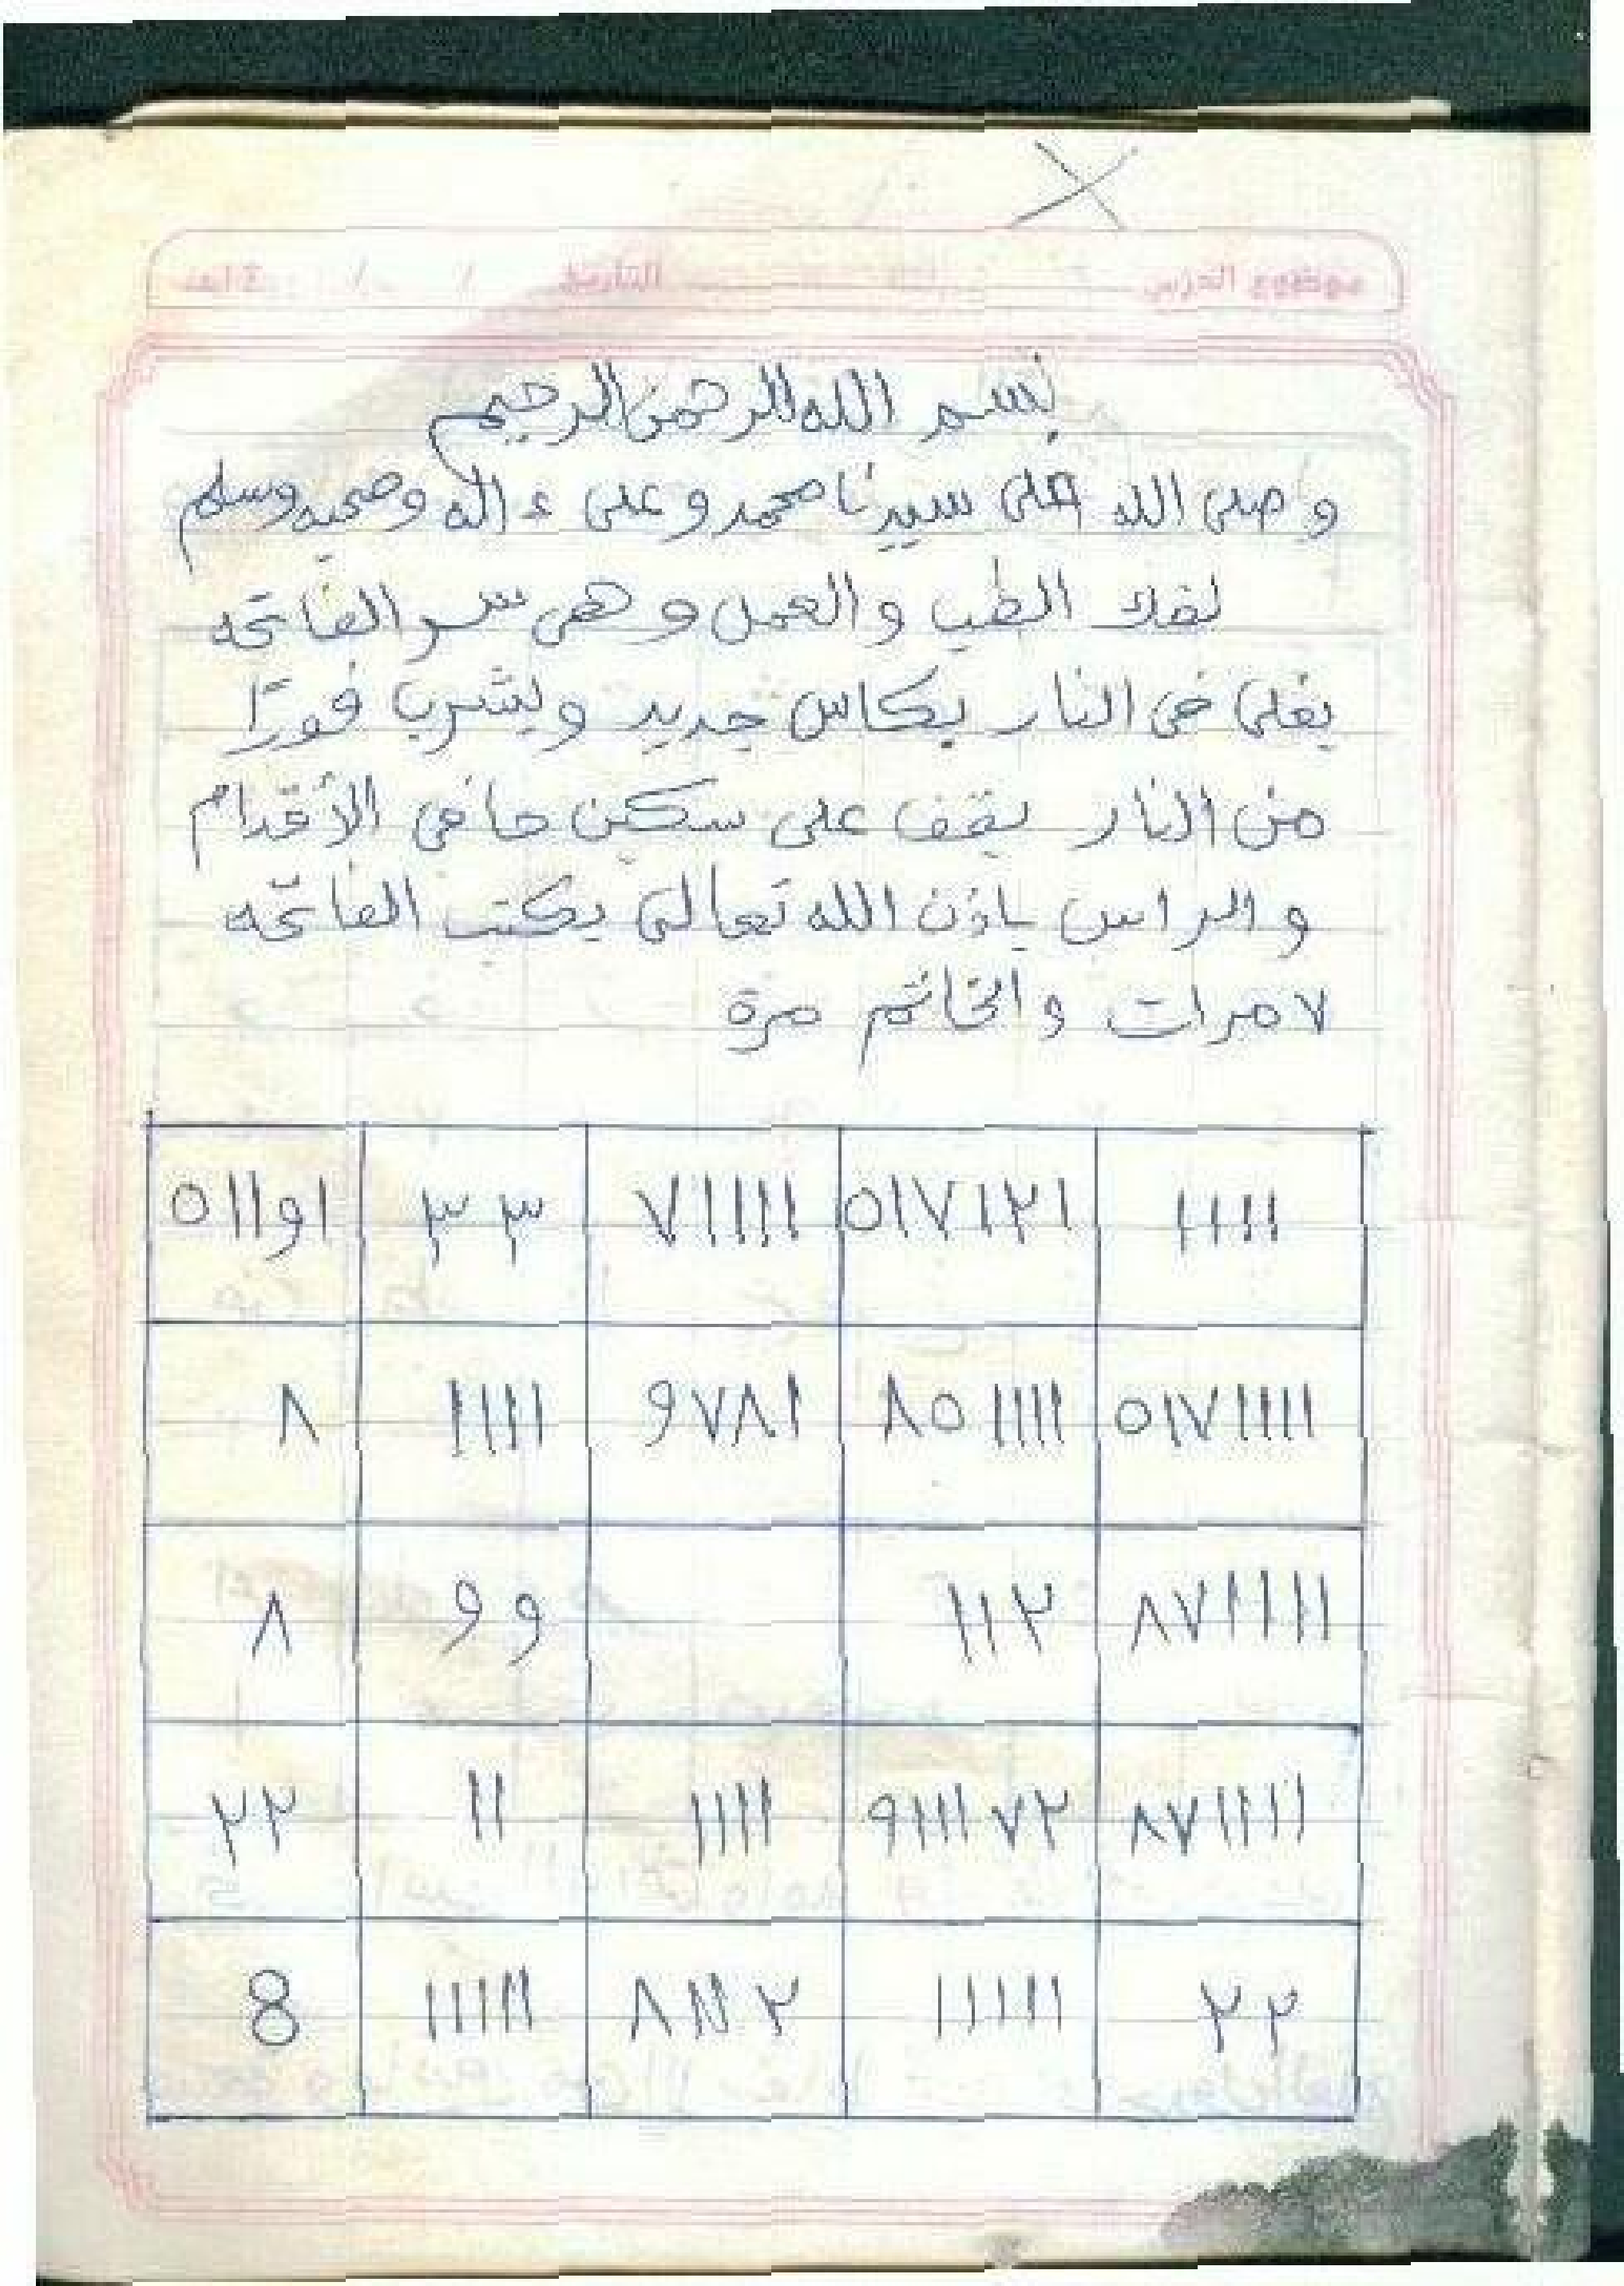 بسم الله الرحمن الرحيم
وصلى الله على سيدنا محمد وعلى ءاله وصحبه وسلم
لفك الطب والعمل وهى سر الفاتحه
يغلى فى النار بكاس جديد ويشرب فورًا
من النار يقف على سكين حافى الأقدام
والراس باذن الله تعالى يكتب الفاتحه
٧ مرات والخاتم مرة
١١١١ ٥١٧١٢١ ٧١١١١١ ٣٣ ١و١١٥
٥١٧١١١١ ٨٥١١١١ ٩٧٨١ ١١١١ ٨
٨٧١١١١١ ١١٢ ٩٩ ٨
٨٧١١١١ ٩١١١٧٢ ١١١١ ١١ ٢٢
٢٢ ١١١١١ ٨١١١٢ ١١١١١ 8